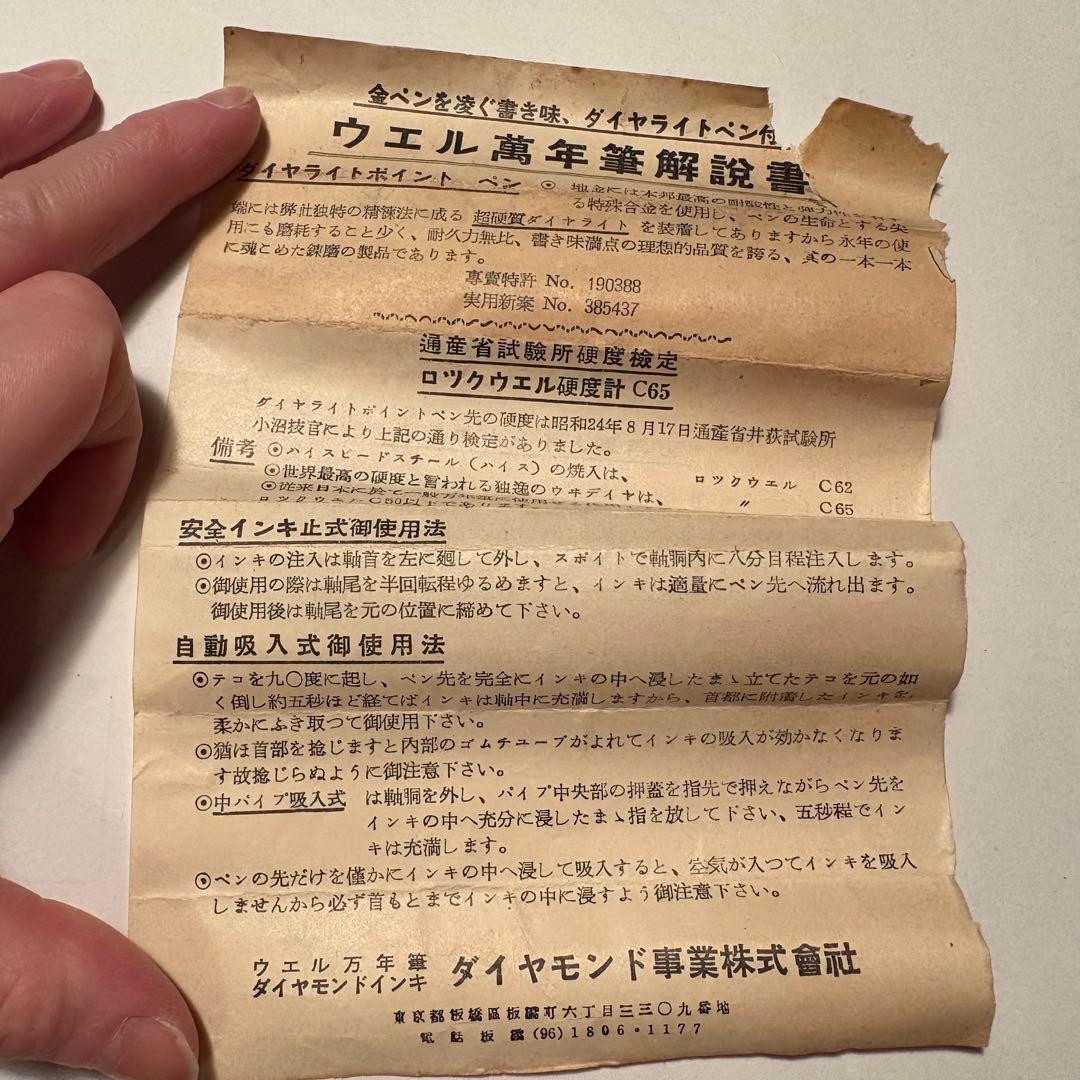 金ペンを凌ぐ書き味、ダイヤライトペン付
ウエル萬年筆解説書
ダイヤライトポイント ペン ◉ 地金には本邦最高の耐酸性と弾力性
る特殊合金を使用し、ペンの生命とする尖
端には弊社独特の精錬法に成る 超硬質ダイヤライト を装着してありますから永年の使
用にも磨耗すること少く、耐久力無比、書き味満点の理想的品質を誇る、其の一本一本
に魂こめた錬磨の製品であります。
專賣特許 No. 190388
実用新案 No. 385437
通産省試験所硬度検定
ロツクウエル硬度計 C65
ダイヤライトポイントペン先の硬度は昭和24年8月17日通産省井荻試験所
小沼技官により上記の通り検定がありました。
備考 ◉ハイスピードスチール(ハイス)の焼入は、 ロツクウエル C62
◉世界最高の硬度と言われる独逸のウヰデイヤは、 〃 C65
◉従来日本に於て一般万年筆に使用せる
ロツクウエルC50以下であります
安全インキ止式御使用法
◉インキの注入は軸首を左に廻して外し、スポイトで軸胴内に八分目程注入します。
◉御使用の際は軸尾を半回転程ゆるめますと、インキは適量にペン先へ流れ出ます。
御使用後は軸尾を元の位置に締めて下さい。
自動吸入式御使用法
◉テコを九〇度に起し、ペン先を完全にインキの中へ浸したまゝ立てたテコを元の如
く倒し約五秒ほど経てばインキは軸中に充満しますから、首部に附着したインキを
柔かにふき取つて御使用下さい。
◉猶ほ首部を捻じますと内部のゴムチューブがよれてインキの吸入が効かなくなりま
す故捻じらぬように御注意下さい。
◉中パイプ吸入式 は軸胴を外し、パイプ中央部の押蓋を指先で押えながらペン先を
インキの中へ充分に浸したまゝ指を放して下さい、五秒程でイン
キは充満します。
◉ペンの先だけを僅かにインキの中へ浸して吸入すると、空気が入つてインキを吸入
しませんから必ず首もとまでインキの中に浸すよう御注意下さい。
ウエル万年筆 ダイヤモンド事業株式會社
ダイヤモンドインキ
東京都板橋區板橋町六丁目三三〇九番地
電話板橋(96)1806・1177